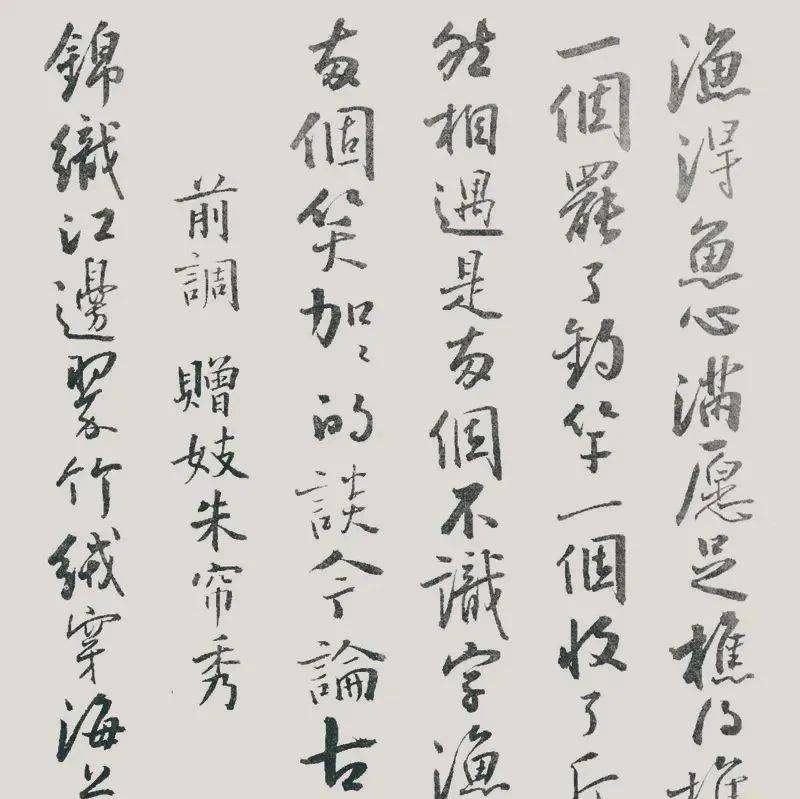 漁得魚心滿愿足樵得樵
一個罷了釣竿一個收了斤
然相遇是两個不識字漁
两個笑加〻的談今論古
前調 贈妓朱帘秀
錦織江邊翠竹絨穿海上